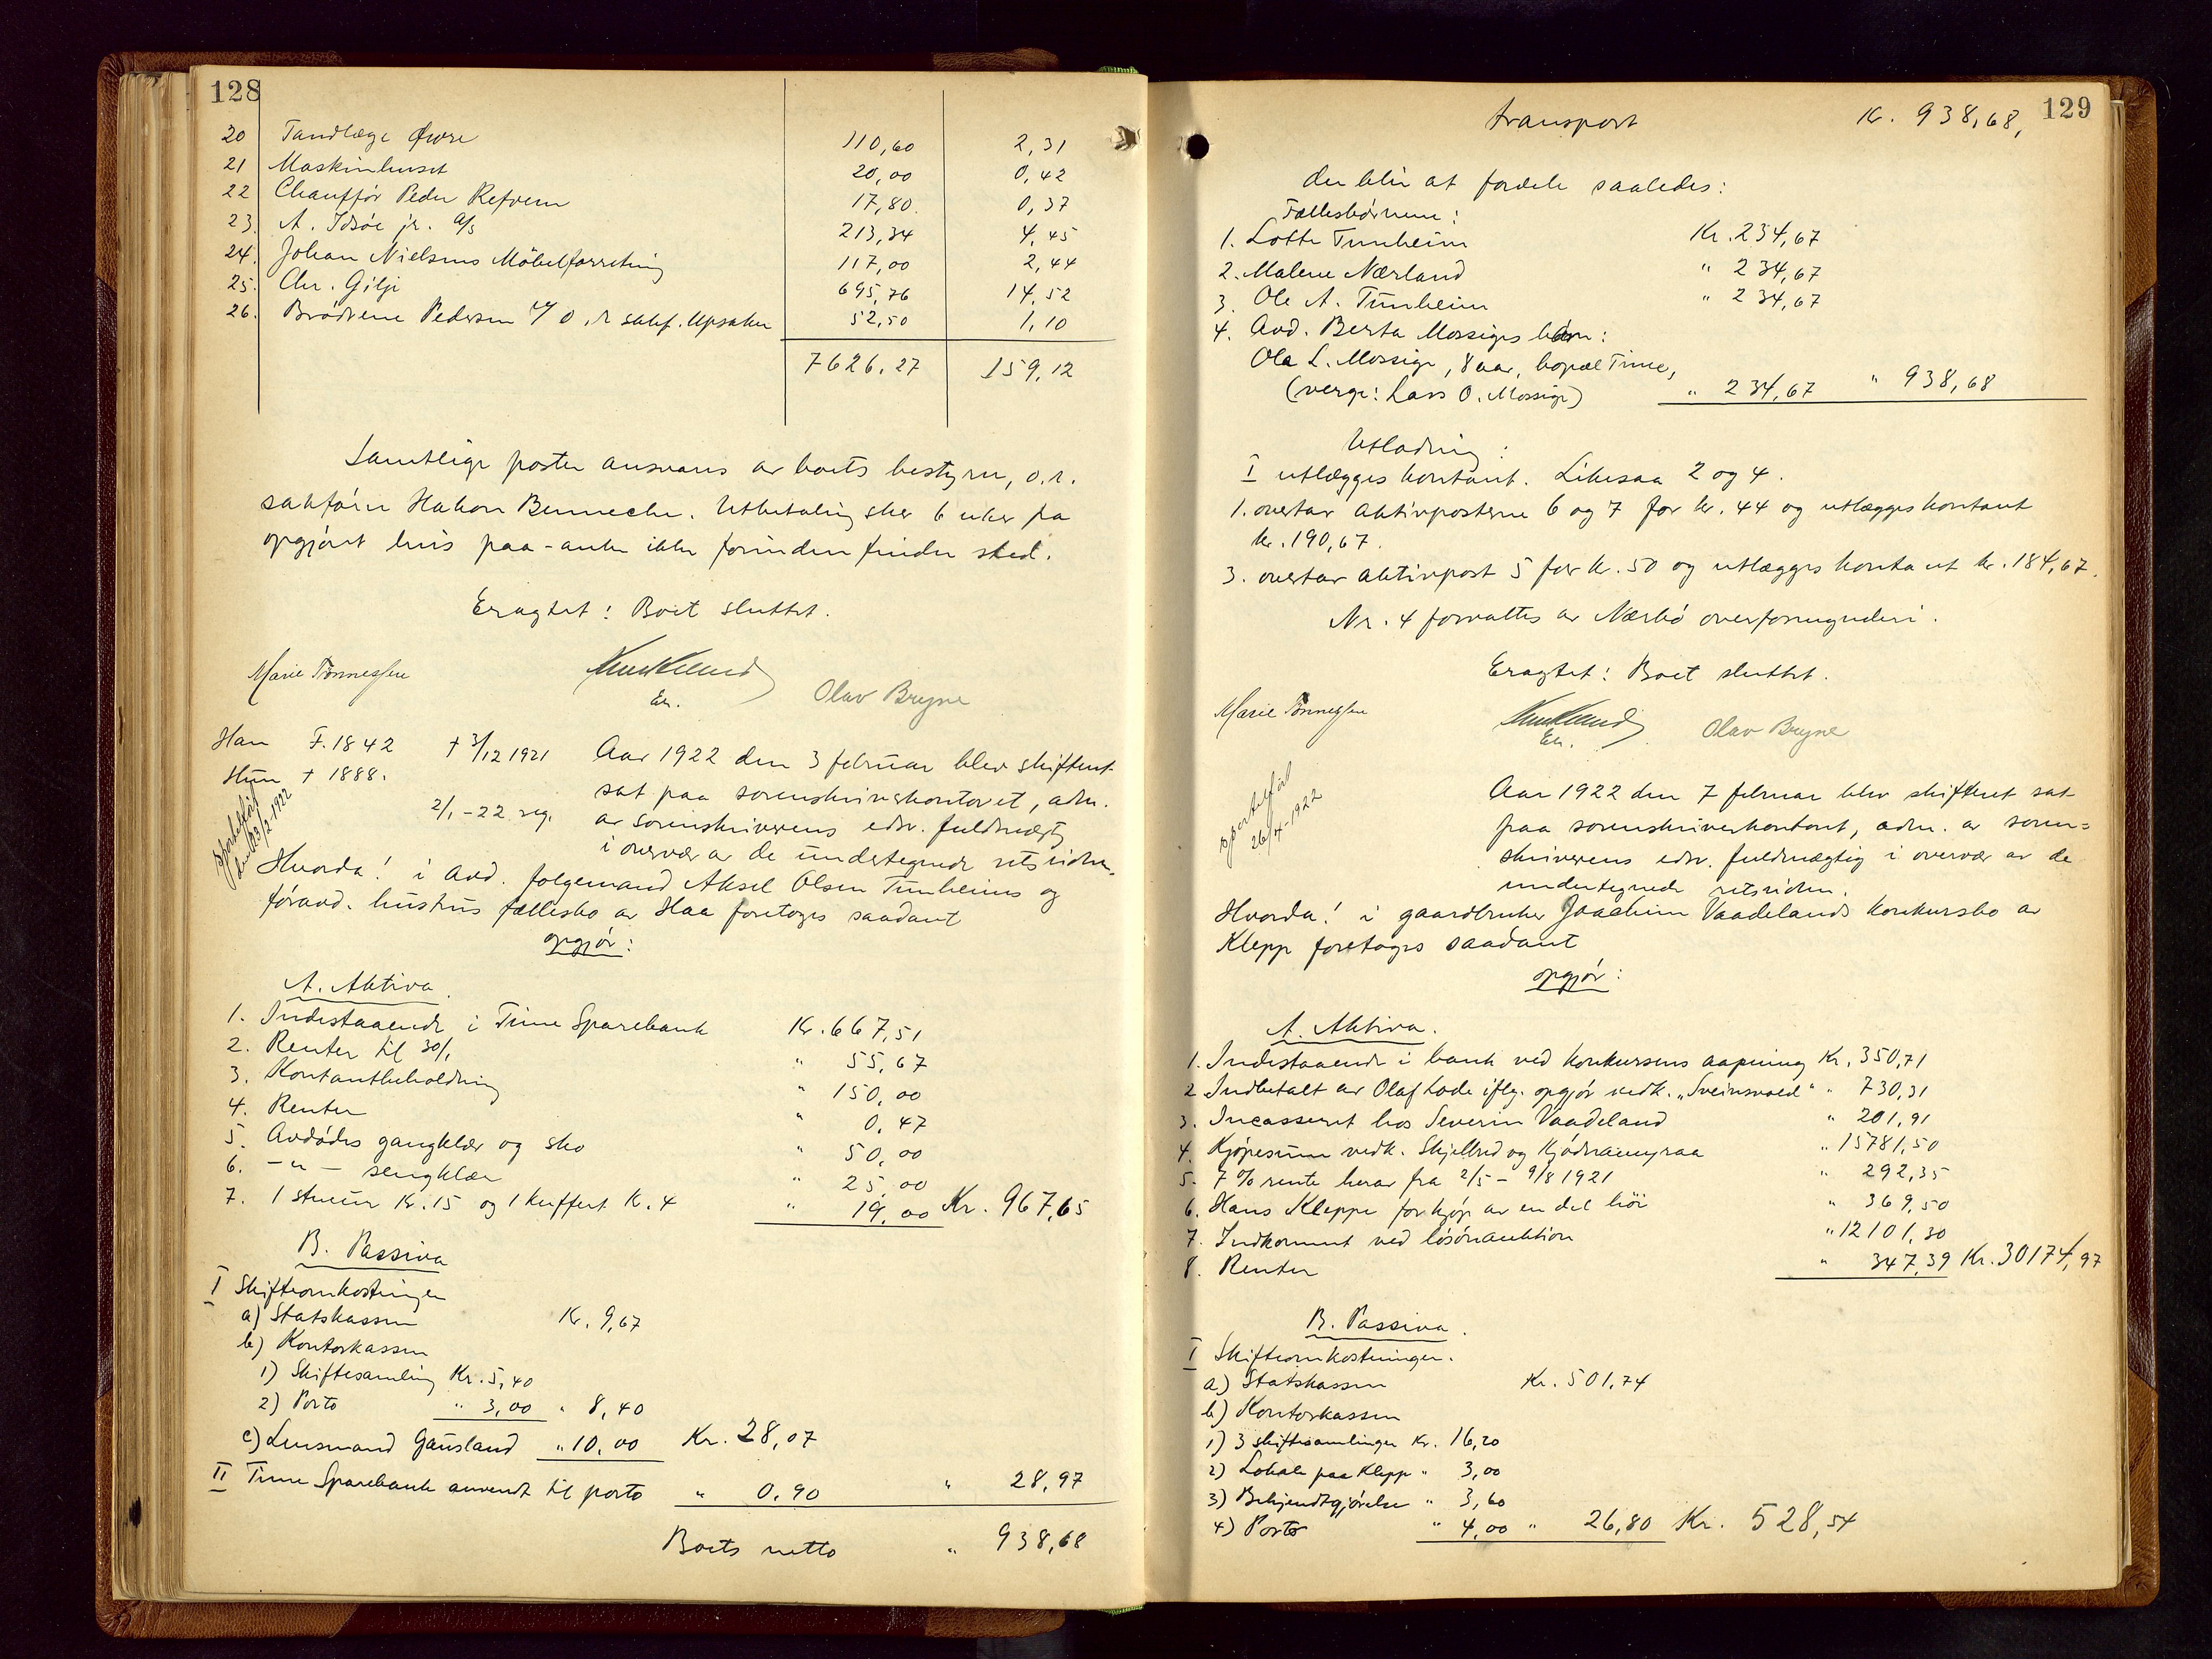 128
20 Tandlæge Øvre 110,60 2,31
21 Maskinhuset 20,00 0,42
22 Chauffør Peder Refvem 17,80 0,37
23. A. Idsøe jr. A/S 213,34 4,45
24. Johan Nielsens Møbelforretning 117,00 2,44
25. Chr. Gilje 695,76 14,52
26. Brødrene Pedersen v/ o.r. sakf. Upsaker 52,50 1,10
7626,27 159,12
Samtlige poster ansvares av boets bestyrer, o.r.
sakfører Hakon Benneche. Utbetaling sker 6 uker fra
opgjøret hvis paa-anke ikke forinden finder sted.
Eragtet: Boet sluttet.
Marie Tønnessen
Ek.
Olav Bryne
Han F. 1842 † 3/12 1921
Hun † 1888.
2/1-22 reg.
Sportelført
den 23/2-1922
Aar 1922 den 3 februar blev skifteret
sat paa sorenskriverkontoret, adm.
av sorenskriverens edsv. fuldmægtig
i overvær av de undertegnede retsvidner.
Hvorda! i avd. følgemand Aksel Olsen Tunheims og
føravd. hustrus fællesbo av Haa foretoges saadant
opgjør:
A. Aktiva.
1. Indestaaende i Time Sparebank Kr. 667,51
2. Renter til 30/1 " 55,67
3. Kontantbeholdning " 150,00
4. Renter " 0,47
5. Avdødes gangklær og sko " 50,00
6. -"- sengklær " 25,00
7. 1 stueur Kr. 15 og 1 kuffert Kr. 4 " 19,00 Kr. 967,65
B. Passiva
I Skifteomkostninger
a) Statskassen Kr. 9,67
b) Kontorkassen
1) Skiftesamling Kr. 5,40
2) Porto " 3,00 " 8,40
c) Lensmand Gausland " 10,00 Kr. 28,07
II Time Sparebank anvendt til porto " 0,90 " 28,97
Boets netto " 938,68
129
transport Kr. 938,68,
der blir at fordele saaledes:
Fællesbørnene:
1. Lotte Tunheim Kr. 234,67
2. Malene Nærland " 234,67
3. Ole A. Tunheim " 234,67
4. Avd. Berta Mossiges børn:
Ola L. Mossige, 8 aar, bopæl Time,
(verge: Lars O. Mossige) " 234,67 " 938,68
Utlodning:
I utlægges kontant. Likesaa 2 og 4.
1. overtar aktivposterne 6 og 7 for kr. 44 og utlægges kontant
kr. 190,67.
3. overtar aktivpost 5 for kr. 50 og utlægges kontant kr. 184,67.
Nr. 4 forvaltes av Nærbø overformynderi.
Eragtet: Boet sluttet.
Marie Tønnessen
Ek.
Olav Bryne
Sportelført
26/4-1922
Aar 1922 den 7 februar blev skifteret sat
paa sorenskriverkontoret, adm. av soren=
skriverens edsv. fuldmægtig i overvær av de
undertegnede retsvidner.
Hvorda! i gaardbruker Joachim Vaadelands konkursbo av
Klepp foretoges saadant
opgjør:
A. Aktiva.
1. Indestaaende i bank ved konkursens aapning Kr. 350,71
2. Indbetalt av Olaf Lode iflg. opgjør vedk. „Sveinsvold" " 730,31
3. Incasseret hos Severin Vaadeland " 201,91
4. Kjøpesum vedk. Skjelbred og Kjødnamyraa " 15781,50
5. 7% rente herav fra 2/5 - 9/8 1921 " 292,35
6. Hans Kleppe for kjøp av en del høi " 369,50
7. Indkommet ved løsøreauktion " 12101,30
8. Renter " 347,39 Kr. 30174,97
B. Passiva.
I Skifteomkostninger.
a) Statskassen Kr. 501,74
b) Kontorkassen
1) 3 skiftesamlinger Kr. 16,20
2) Lokale paa Klepp " 3,00
3) Bekjendtgjørelse " 3,60
4) Porto " 4,00 " 26,80 Kr. 528,54